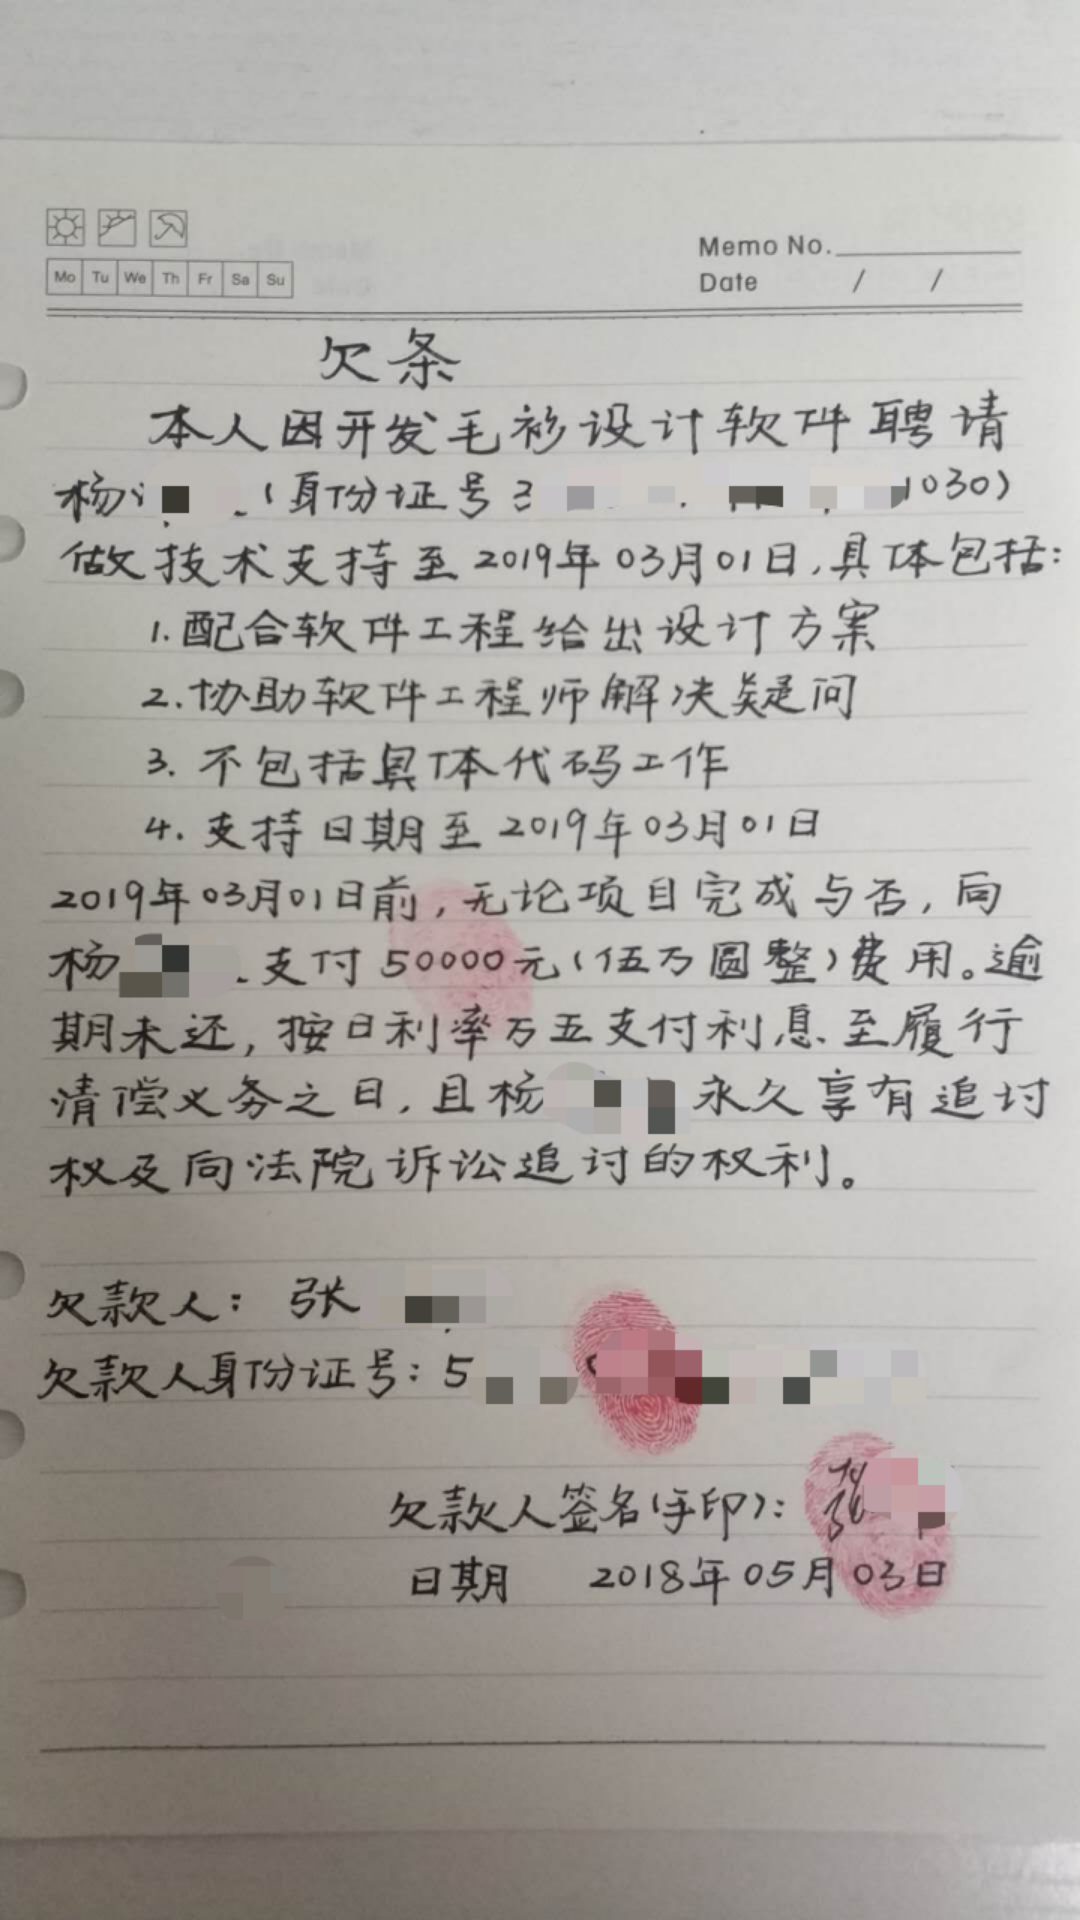 Mo Tu We Th Fr Sa Su
Memo No.
Date / /
欠条
本人因开发毛衫设计软件聘请
杨 (身份证号3 1030)
做技术支持至2019年03月01日,具体包括:
1.配合软件工程给出设计方案
2.协助软件工程师解决疑问
3.不包括具体代码工作
4.支持日期至2019年03月01日
2019年03月01日前,无论项目完成与否,向
杨 支付50000元(伍万圆整)费用。逾
期未还,按日利率万五支付利息至履行
清偿义务之日,且杨 永久享有追讨
权及向法院诉讼追讨的权利。
欠款人: 张
欠款人身份证号:5
欠款人签名(手印): 张
日期 2018年05月03日